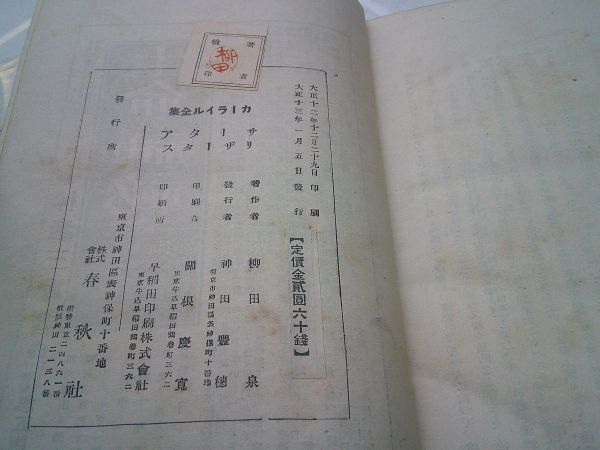 著者
検印
柳田
大正十二年十二月二十九日印刷
大正十三年一月五日發行
【定價金貳圓六十錢】
カーライル全集
サーターリザータス
著作者 柳田泉
發行者 神田豐穗
東京市神田區表神保町十番地
印刷者 關根慶寬
東京牛込早稻田鶴卷町三六二
印刷所 早稻田印刷株式會社
東京牛込早稻田鶴卷町三六二
發行所
東京市神田區表神保町十番地
株式會社 春秋社
振替東京二四八六一番
電話神田二一三八番